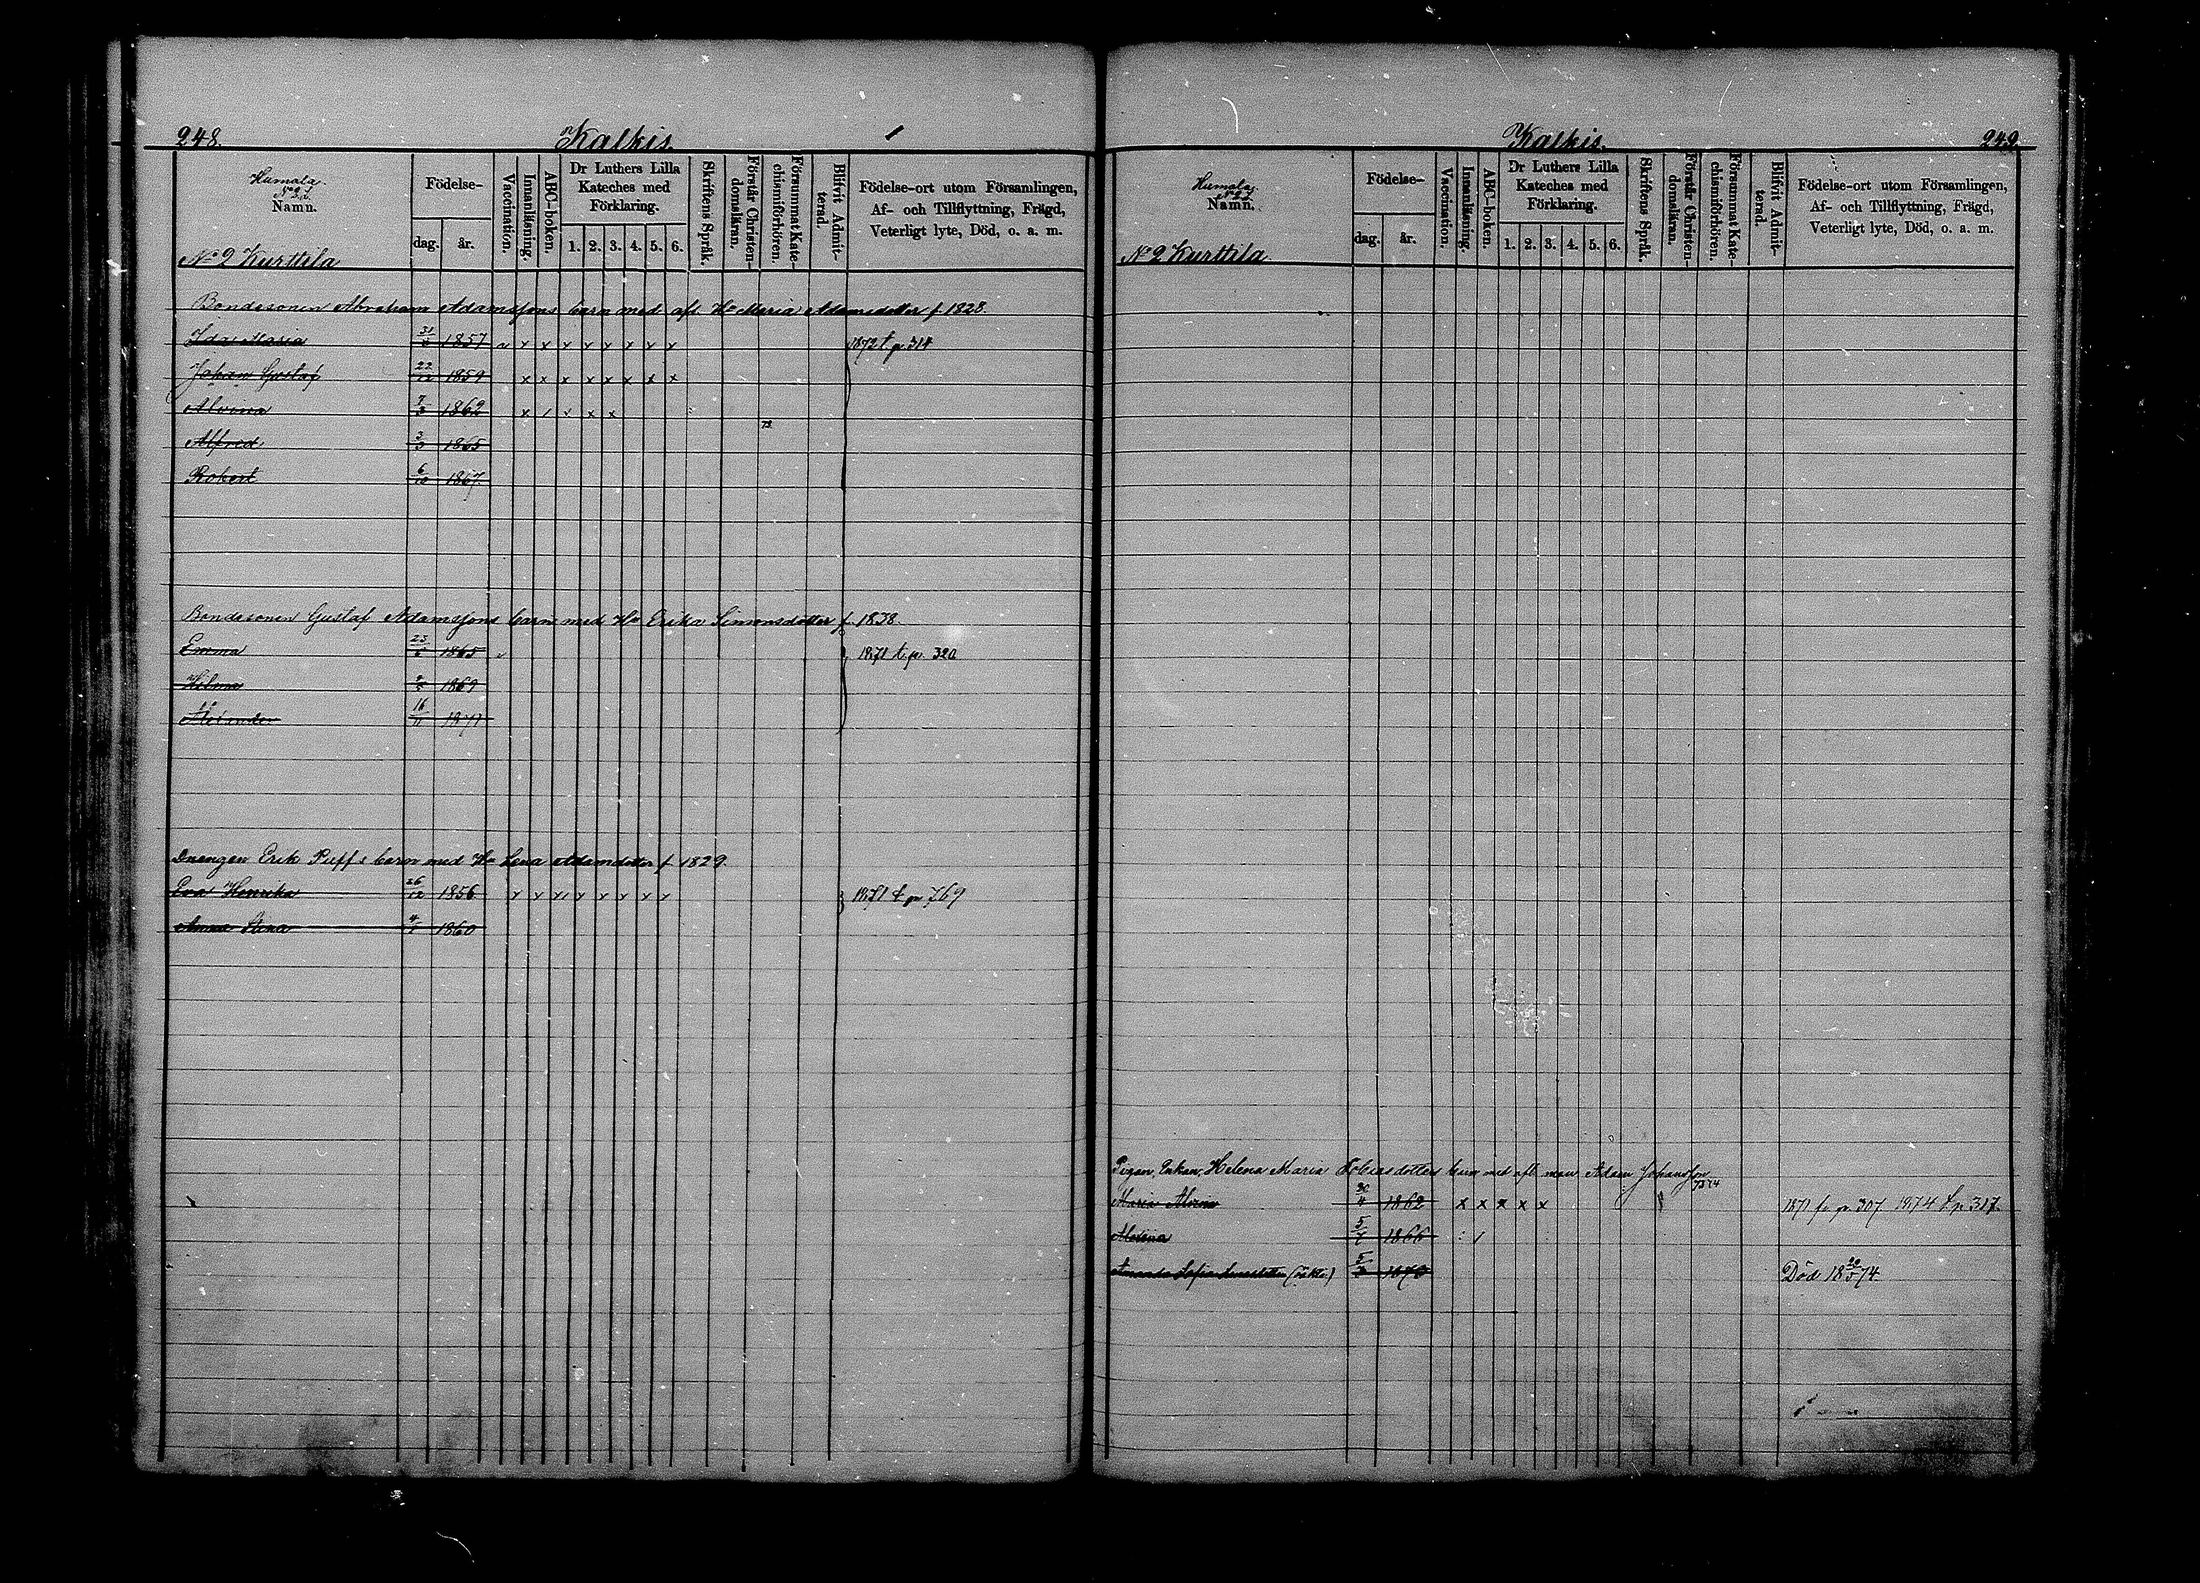 248. Kalkis. 1
Humala
Namn.
No 2 Kurttila
Födelse-
dag. år.
Vaccination.
Innanläsning.
ABC-boken.
Dr Luthers Lilla Kateches med Förklaring.
1. 2. 3. 4. 5. 6.
Skriftens Språk.
Förstår Christendomsläran.
Försummat Katechismiförhören.
Blifvit Admitterad.
Födelse-ort utom Församlingen,
Af- och Tillflyttning, Frägd,
Veterligt lyte, Död, o. a. m.
Bondesonen Abraham Adamssons barn med afl. Hu Maria Adamsdotter f. 1828.
Ida Maria 31 1857 v x x x x x x x x 1872 t. p. 314
Johan Gustaf 22/12 1859 x x x x x x x x
Alvina 7/3 1862 x / v x x
73
Alfred 3/3 1865
Robert 6/10 1867.
Bondesonen Gustaf Adamssons barn med Hu Erika Simonsdotter f. 1838.
Emma 23/6 1865 v 1871 t. p. 320
Hilma 1869
Alexander 16/11 1871
Drengen Erik Puffs barn med Hu Lena Adamsdotter f. 1829.
Eva Henrika 26/12 1856 x x x x x x x x 1871 t. p. 769
Anna Stina 4/1 1860
Kalkis. 249.
Humala
Namn.
No 2 Kurttila
Födelse-
dag. år.
Vaccination.
Innanläsning.
ABC-boken.
Dr Luthers Lilla Kateches med Förklaring.
1. 2. 3. 4. 5. 6.
Skriftens Språk.
Förstår Christendomsläran.
Försummat Katechismiförhören.
Blifvit Admitterad.
Födelse-ort utom Församlingen,
Af- och Tillflyttning, Frägd,
Veterligt lyte, Död, o. a. m.
Pigan, Enkan, Helena Maria Tobiasdotters barn med afl. man Adam Johansson
73 74
Maria Alvina 30/4 1862 x x x x x 1871 fr. p. 307 1874 t. p. 317.
5 1866
Amanda Sofia (oäkta) 5/3 1870 Död 18 20/5 74.